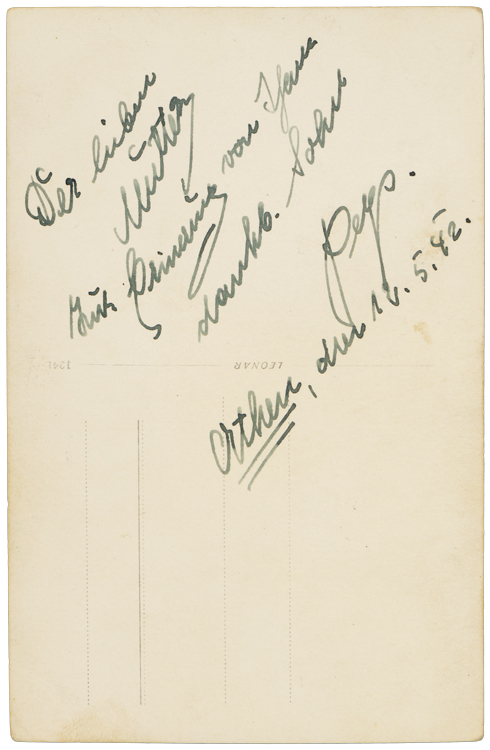 Der lieben
Mutter
zur Erinnerung von Ihrem
dankb. Sohn
Athen, den 12.5.42.
LEONAR